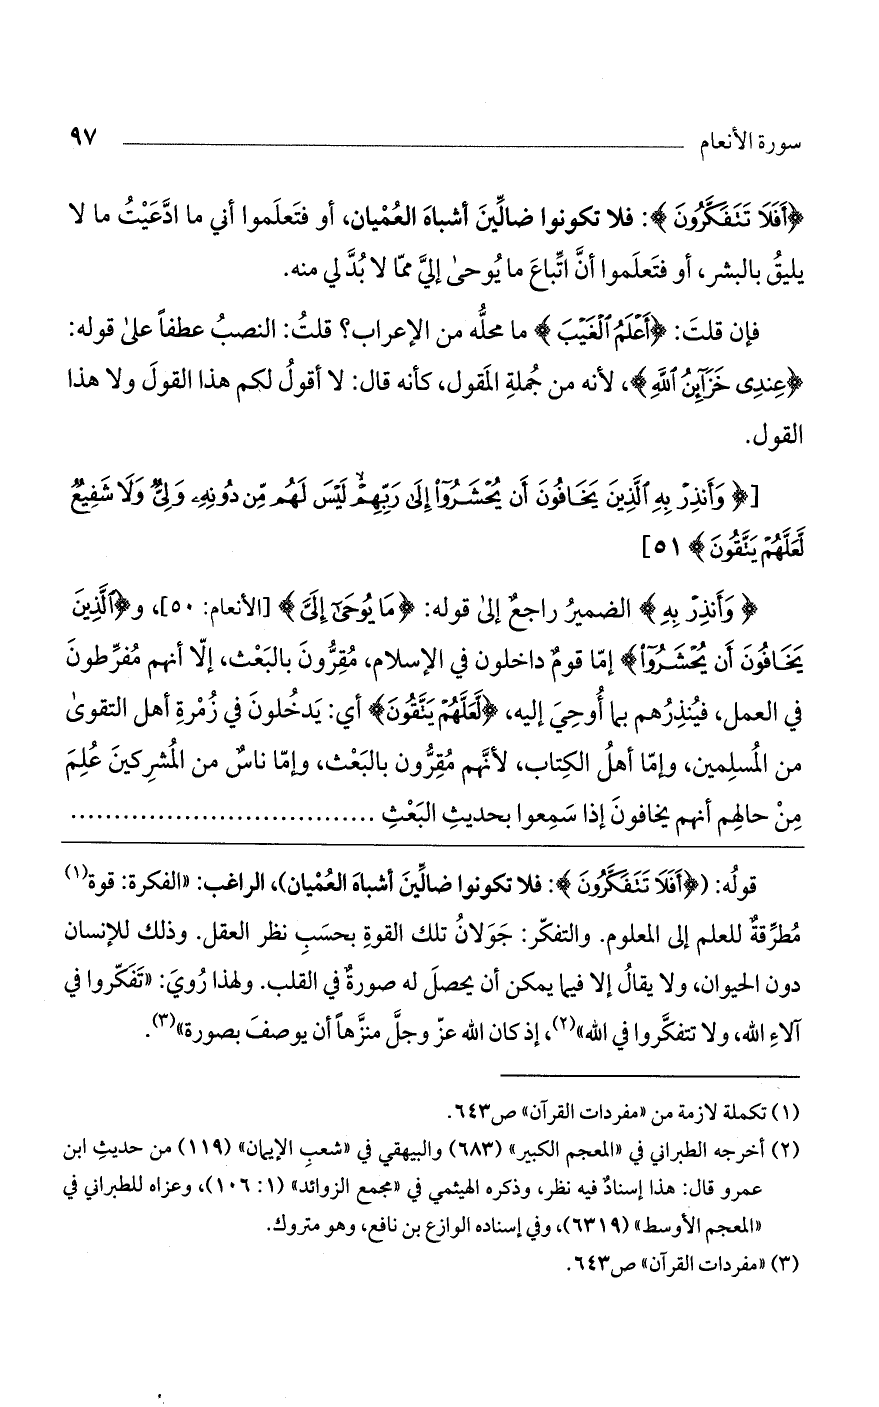 سورة الأنعام ٩٧
﴿أَفَلَا تَتَفَكَّرُونَ﴾: فلا تكونوا ضالِّينَ أشباهَ العُمْيان، أو فتَعلَموا أني ما ادَّعَيْتُ ما لا
يليقُ بالبشر، أو فتَعلَموا أنَّ اتِّباعَ ما يُوحىٰ إليَّ ممّا لا بُدَّ لي منه.
فإن قلتَ: ﴿أَعْلَمُ ٱلْغَيْبَ﴾ ما محلُّه من الإعراب؟ قلتُ: النصبُ عطفاً علىٰ قوله:
﴿عِندِى خَزَآئِنُ ٱللَّهِ﴾، لأنه من جُملةِ المَقول، كأنه قال: لا أقولُ لكم هذا القولَ ولا هذا
القول.
[﴿وَأَنذِرْ بِهِ ٱلَّذِينَ يَخَافُونَ أَن يُحْشَرُوٓا۟ إِلَىٰ رَبِّهِمْ ۙ لَيْسَ لَهُم مِّن دُونِهِۦ وَلِىٌّ وَلَا شَفِيعٌ
لَّعَلَّهُمْ يَتَّقُونَ﴾ ٥١]
﴿وَأَنذِرْ بِهِ﴾ الضميرُ راجعٌ إلىٰ قوله: ﴿مَا يُوحَىٰٓ إِلَىَّ﴾ [الأنعام: ٥٠]، و﴿ٱلَّذِينَ
يَخَافُونَ أَن يُحْشَرُوٓا۟﴾ إمّا قومٌ داخلون في الإسلام، مُقِرُّونَ بالبَعْث، إلّا أنهم مُفرِّطونَ
في العمل، فيُنذِرُهم بما أُوحِيَ إليه، ﴿لَّعَلَّهُمْ يَتَّقُونَ﴾ أي: يَدخُلونَ في زُمْرةِ أهل التقوىٰ
من المُسلِمين، وإمّا أهلُ الكِتاب، لأنَّهم مُقِرُّون بالبَعْث، وإمّا ناسٌ من المُشرِكينَ عُلِمَ
مِنْ حالِهم أنهم يخافونَ إذا سَمِعوا بحديثِ البَعْثِ ...................................
قولُه: (﴿أَفَلَا تَتَفَكَّرُونَ﴾: فلا تكونوا ضالِّينَ أشباهَ العُمْيان)، الراغب: «الفكرة: قوة(١)
مُطرِّقةٌ للعلم إلى المعلوم. والتفكّر: جَوَلانُ تلك القوةِ بحسَبِ نظر العقل. وذلك للإنسان
دون الحيوان، ولا يقالُ إلا فيما يمكن أن يحصلَ له صورةٌ في القلب. ولهذا رُويَ: «تَفَكّروا في
آلاءِ الله، ولا تتفكَّروا في الله»(٢)، إذ كان الله عزّ وجلَّ منزَّهاً أن يوصفَ بصورة»(٣).
(١) تكملة لازمة من «مفردات القرآن» ص٦٤٣.
(٢) أخرجه الطبراني في «المعجم الكبير» (٦٨٣) والبيهقي في «شعبِ الإيمان» (١١٩) من حديثِ ابن
عمرو قال: هذا إسنادٌ فيه نظر، وذكره الهيثمي في «مجمع الزوائد» (١: ١٠٦)، وعزاه للطبراني في
«المعجم الأوسط» (٦٣١٩)، وفي إسناده الوازع بن نافع، وهو متروك.
(٣) «مفردات القرآن» ص٦٤٣.